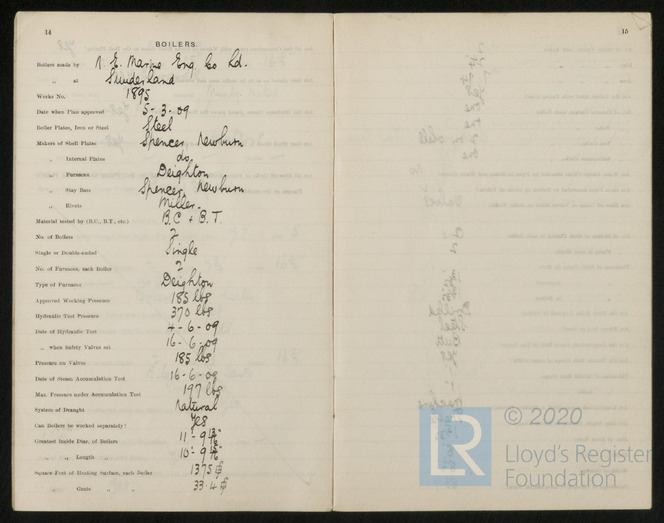 14
BOILERS.
Boilers made by N. E. Marine Eng Co Ld.
„ at Sunderland
Works No. 1895
Date when Plan approved 5-3-09
Boiler Plates, Iron or Steel Steel
Makers of Shell Plates Spencer, Newburn
„ Internal Plates do.
„ Furnaces Deighton
„ Stay Bars Spencer, Newburn
„ Rivets Miller.
Material tested by (B.C., B.T., etc.) B.C + B.T.
No. of Boilers 2
Single or Double-ended Single
No. of Furnaces, each Boiler 2
Type of Furnaces Deighton
Approved Working Pressure 185 lbs
Hydraulic Test Pressure 370 lbs
Date of Hydraulic Test 4-6-09
„ when Safety Valves set 16-6-09
Pressure on Valves 185 lbs
Date of Steam Accumulation Test 16-6-09
Max. Pressure under Accumulation Test 197 lbs
System of Draught Natural
Can Boilers be worked separately? Yes
Greatest Inside Diar. of Boilers 11'-9
„ „ Length „ 10'-9
Square Feet of Heating Surface, each Boiler 1375
„ Grate „ „ 33.4
15
LR
© 2020
Lloyd's Register
Foundation